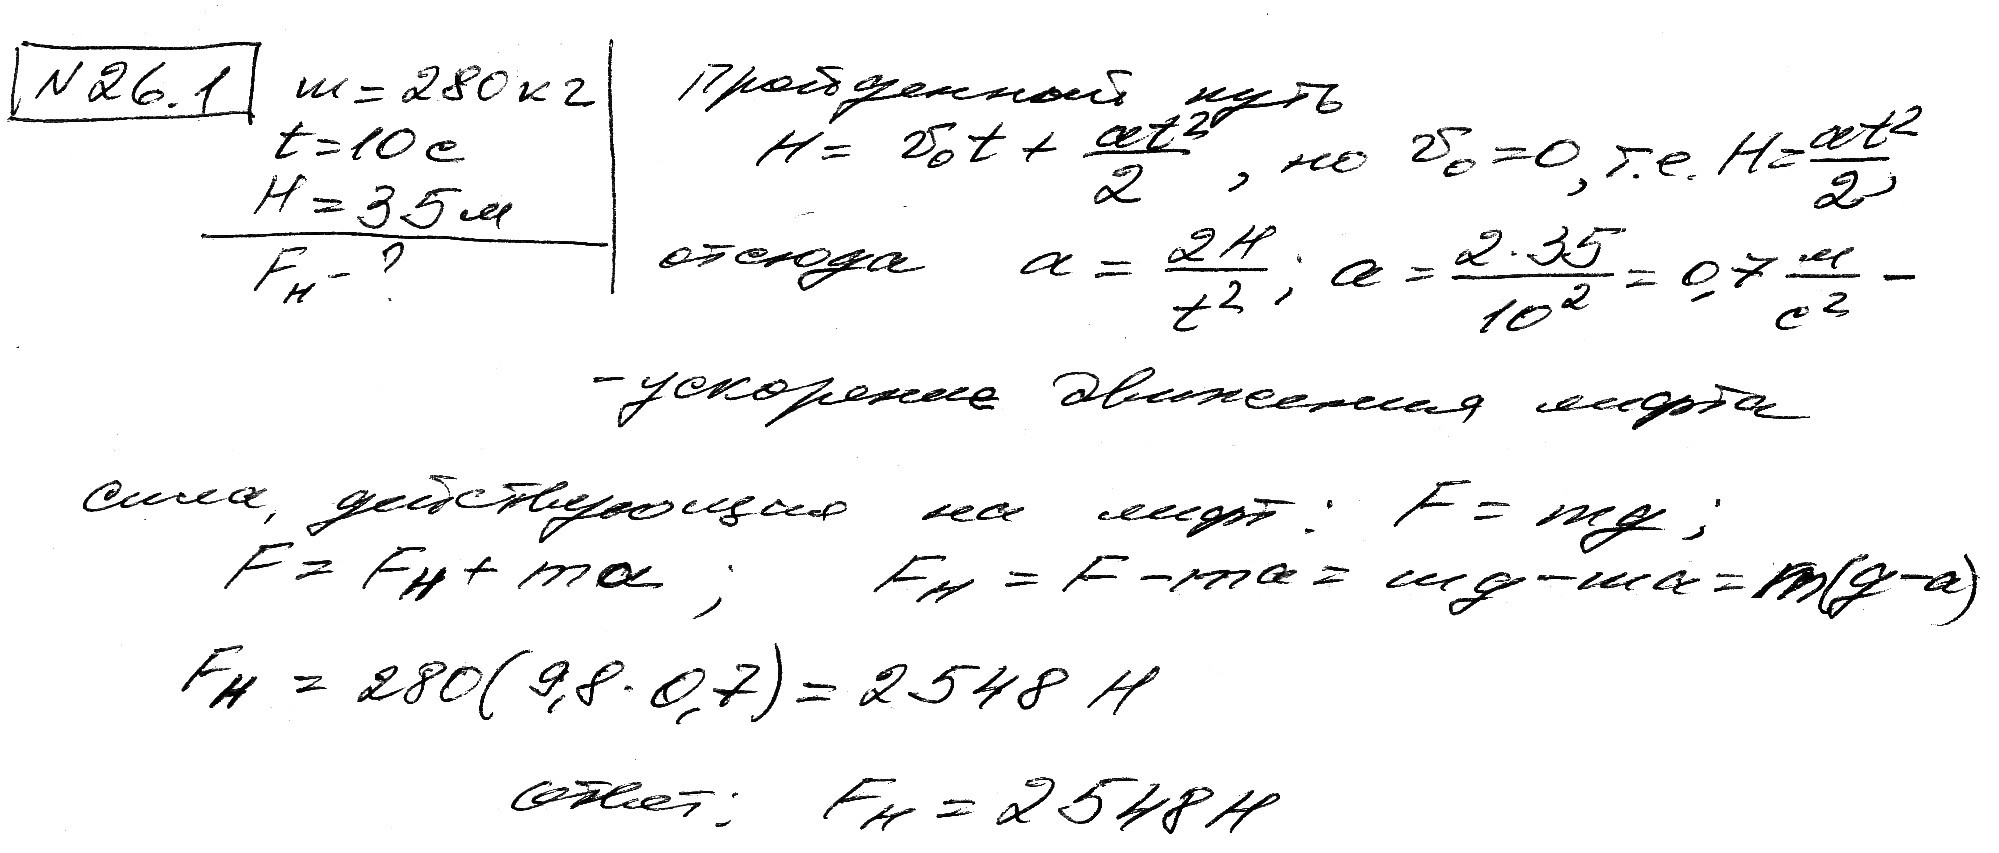 N 26.1
m = 280 кг
t = 10 с
H = 35 м
Fн - ?
Пройденный путь
H = v₀t + at²/2, но v₀ = 0, т.е. H = at²/2,
отсюда a = 2H/t²; a = 2·35/10² = 0,7 м/с² -
- ускорение движения лифта
сила, действующая на лифт: F = mg;
F = Fн + ma; Fн = F - ma = mg - ma = m(g-a)
Fн = 280(9,8 · 0,7) = 2548 Н
ответ: Fн = 2548 Н